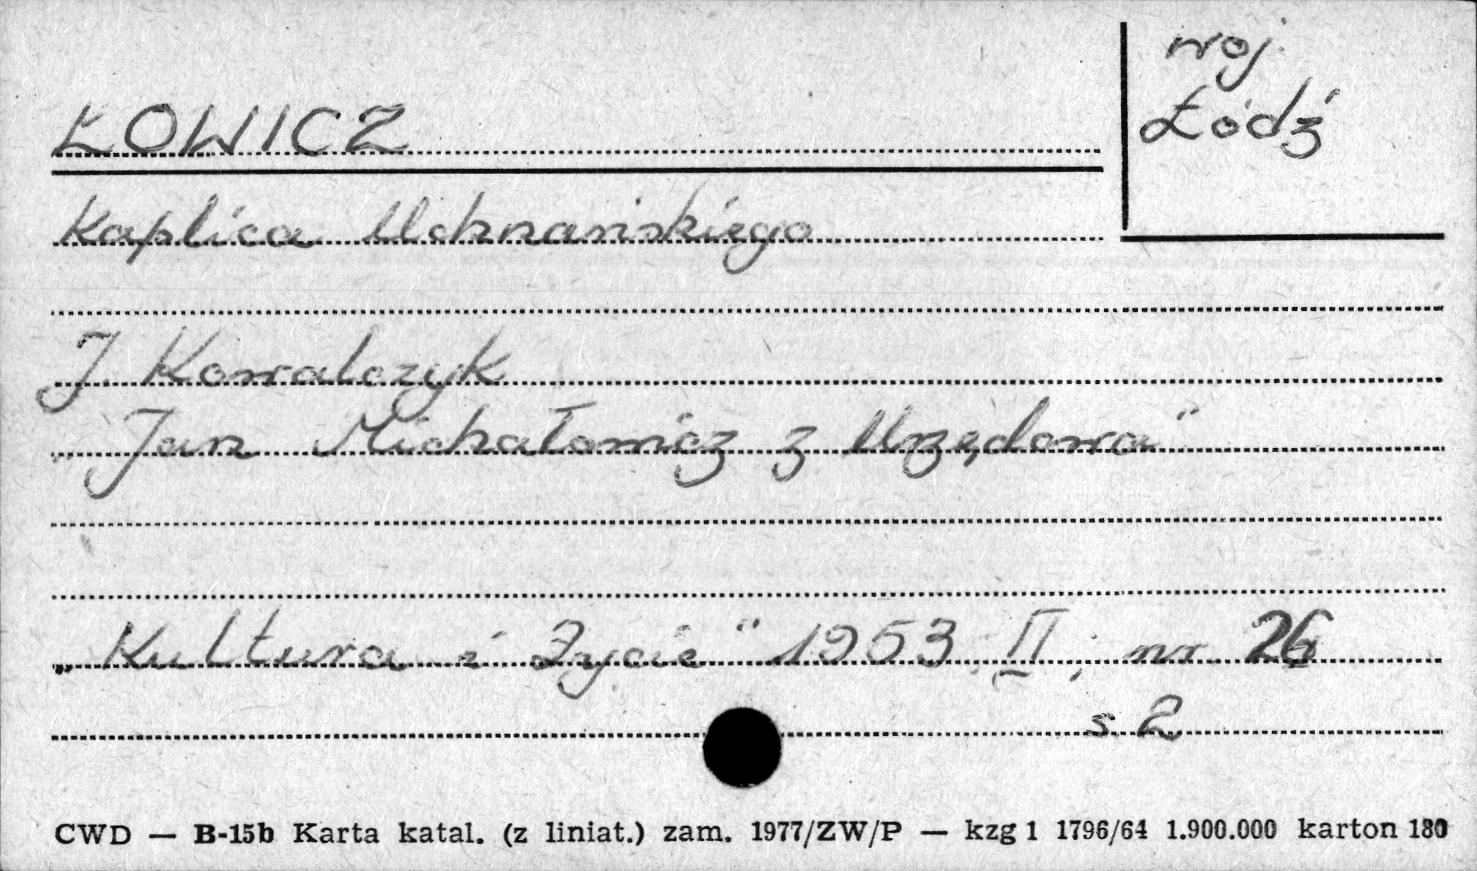 woj.
Łódź
ŁOWICZ
Kaplica Uchnańskiego
J. Kowalczyk
„Jan Michałowicz z Urzędowa"
„Kultura i Życie" 1953, II, nr 26
s. 2
CWD — B-15b Karta katal. (z liniat.) zam. 1977/ZW/P — kzg 1 1796/64 1.900.000 karton 180